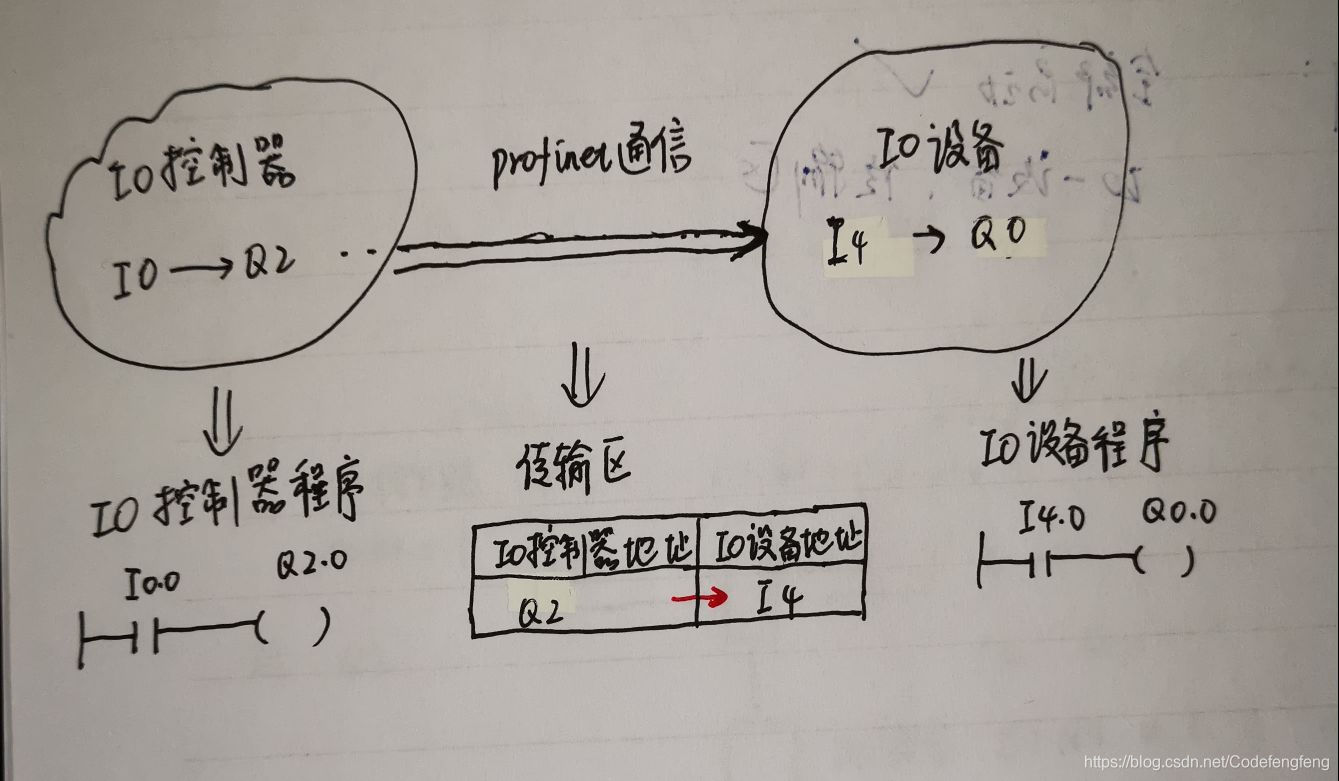 IO控制器
I0 → Q2 ··
profinet通信
IO设备
I4 → Q0
IO控制器程序
I0.0 Q2.0
( )
传输区
IO控制器地址 IO设备地址
Q2 → I4
IO设备程序
I4.0 Q0.0
( )
https://blog.csdn.net/Codefengfeng